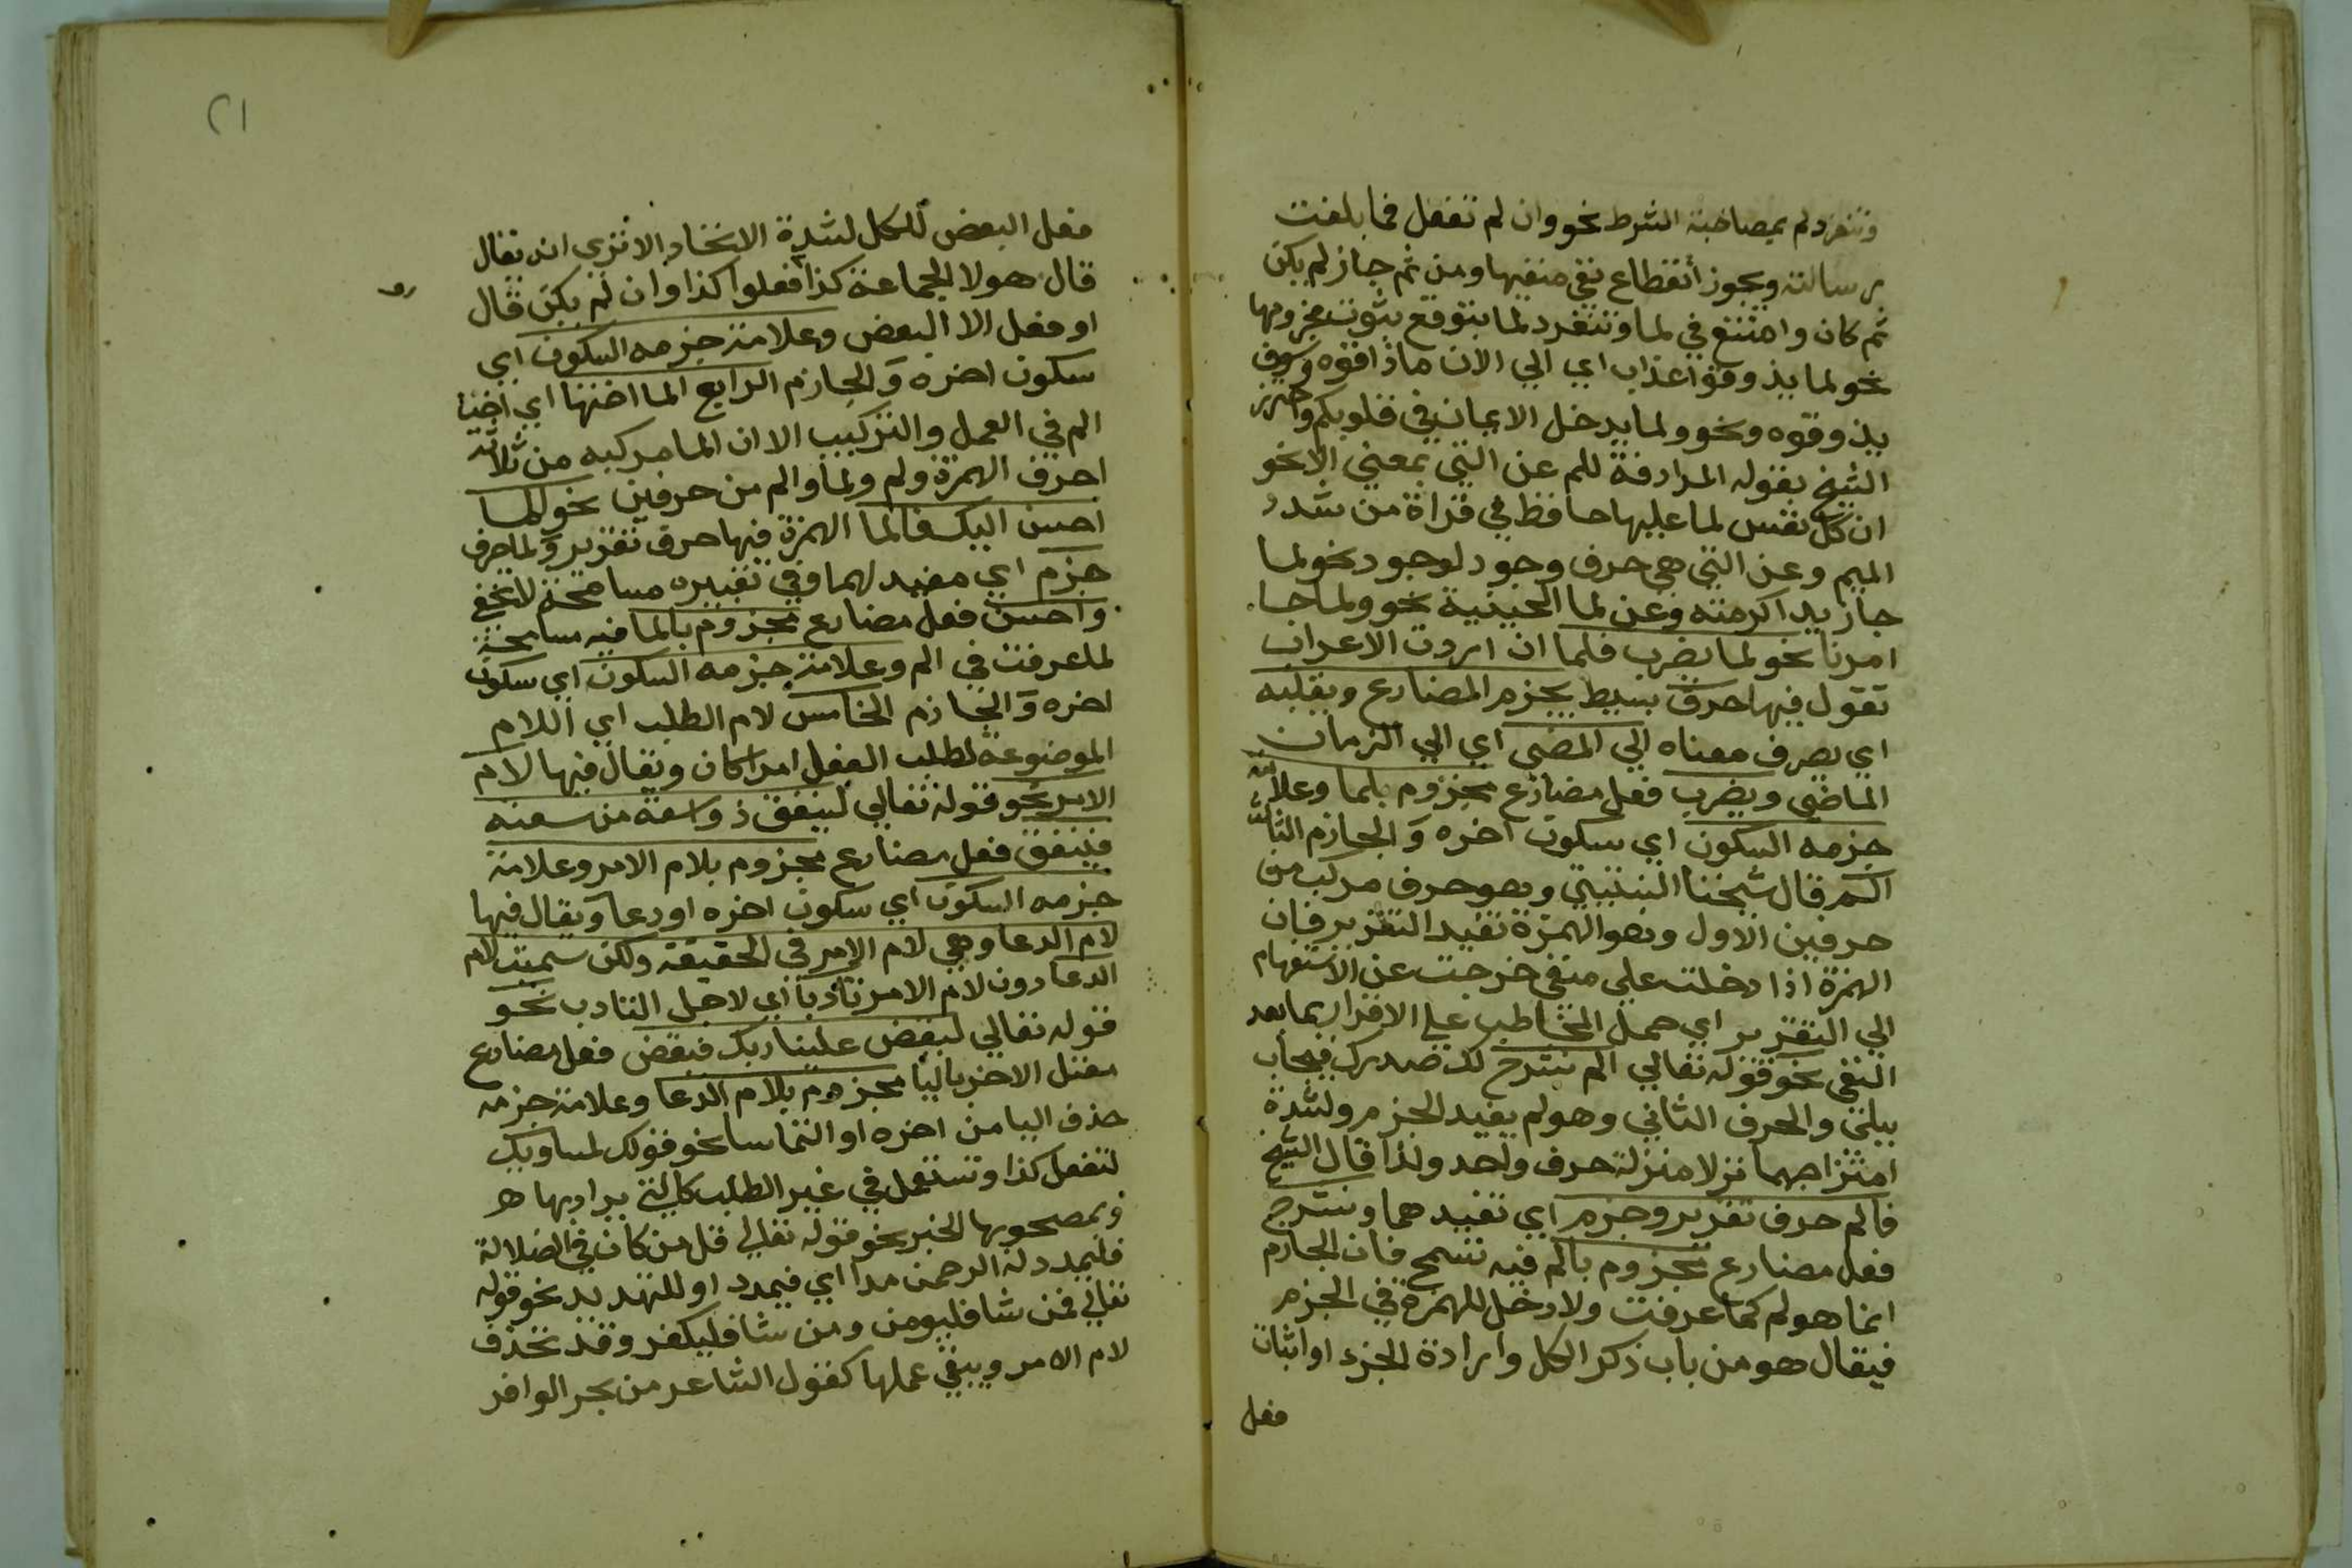 وتنفرد لم بمصاحبة الشرط نحو وان لم تفعل فما بلغت
رسالته ويجوز أنقطاع نفي منفيها ومن ثم جاز لم يكن
ثم كان وامتنع في لما وتنفرد لما بتوقع ثبوت مجزومها
نحو لما يذوقوا عذاب اي الي الان ماذاقوه وسوف
يذوقوه ونحو ولما يدخل الايمان في قلوبكم واحترز
الشيخ بقوله المرادفة للم عن التي بمعني الا نحو
ان كل نفس لما عليها حافظ في قراة من شدد
الميم وعن التي هي حرف وجود لوجود نحو لما
جا زيد اكرمته وعن لما الحينية نحو ولما جا
امرنا نحو لما يضرب فلما ان اردت الاعراب
تقول فيها حرف بسيط يجزم المضارع ويقلبه
اي يصرف معناه الي المضي اي الي الزمان
الماضي ويضرب فعل مضارع مجزوم بلما وعلامة
جزمه السكون اي سكون اخره والجازم الثالث
الم قال شيخنا الشنتيتي وهو حرف مركب من
حرفين الاول وهو الهمزة تفيد التقرير فان
الهمزة اذا دخلت علي منفي خرجت عن الاستفهام
الي التقرير اي حمل المخاطب علي الاقرار بما بعد
النفي نحو قوله تعالي الم نشرح لك صدرك فيجاب
ببلي والحرف الثاني وهو لم يفيد الجزم ولشدة
امتزاجهما نزلا منزلة حرف واحد ولذا قال الشيخ
فالم حرف تقرير وجزم اي تفيدهما ونشرح
فعل مضارع مجزوم بالم فيه تسمح فان الجازم
انما هو لم كما عرفت ولا دخل للهمزة في الجزم
فيقال هو من باب ذكر الكل وارادة الجزء او اثبات
فعل
٢١
فعل البعض للكل لشدة الاتحاد الا تري انه يقال
قال هولا الجماعة كذا فعلوا كذا وان لم يكن قال
او فعل الا البعض وعلامة جزمه السكون اي
سكون اخره والجازم الرابع الما اختها اي اخت
الم في العمل والتركيب الا ان الما مركبه من ثلاثة
احرف الهمزة ولم وما والم من حرفين نحو الما
احسن اليك فالما الهمزة فيها حرف تقرير ولما حرف
جزم اي مفيد لهما وفي تعبيره مسامحة لا تخفي
واحسن فعل مضارع مجزوم بالما فيه مسامحة
لما عرفت في الم وعلامة جزمه السكون اي سكون
اخره والجازم الخامس لام الطلب اي اللام
الموضوعة لطلب الفعل امرا كان ويقال فيها لام
الامر نحو قوله تعالي لينفق ذو سعة من سعته
فينفق فعل مضارع مجزوم بلام الامر وعلامة
جزمه السكون اي سكون اخره او دعا ويقال فيها
لام الدعا وهي لام الامر في الحقيقة ولكن سميت لام
الدعا دون لام الامر تادبا اي لاجل التادب نحو
قوله تعالي ليقض علينا ربك فيقض فعل مضارع
معتل الاخر باليا مجزوم بلام الدعا وعلامة جزمه
حذف اليا من اخره او التماسا نحو قولك لمساويك
لتفعل كذا وتستعمل في غير الطلب كالتي يراد بها هـ
وبمصحوبها الخبر نحو قوله تعالي قل من كان في الضلالة
فليمدد له الرحمن مدا اي فيمدد او للتهديد نحو قوله
تعالي فمن شا فليومن ومن شا فليكفر وقد تحذف
لام الامر ويبقي عملها كقول الشاعر من بحر الوافر